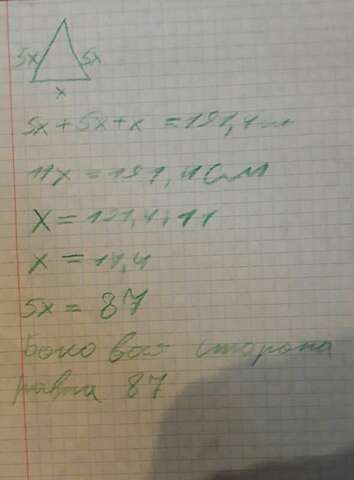 5x 5x
x
5x+5x+x = 191,4 см
11x = 191,4 см
x = 191,4 : 11
x = 17,4
5x = 87
Боковая сторона
равна 87